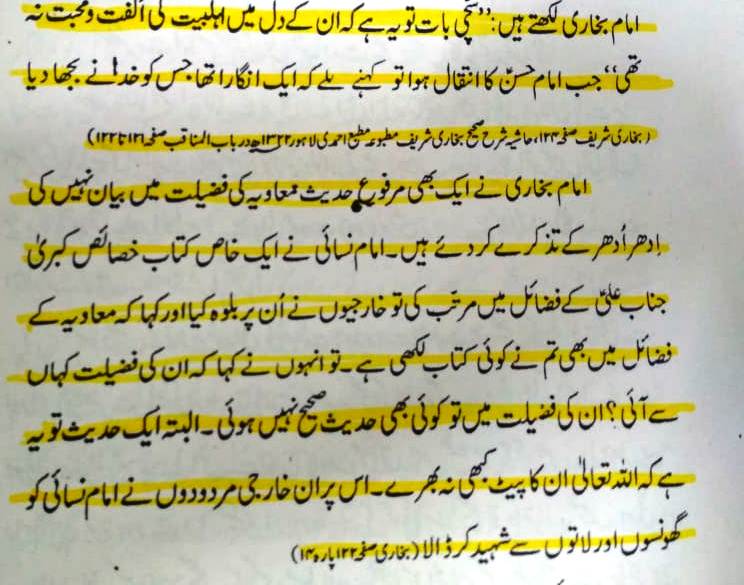 امام بخاری لکھتے ہیں: ’’سچی بات تو یہ ہے کہ ان کے دل میں اہلبیت کی الفت و محبت نہ
تھی‘‘ جب امام حسنؑ کا انتقال ہوا تو کہنے لگے کہ ایک انگارا تھا جس کو خدا نے بجھا دیا
(بخاری شریف صفحہ ۱۲۴، حاشیہ شرح صحیح بخاری شریف مطبوعہ مطبع احمدی لاہور ۱۳۲۲ھ در باب المناقب صفحہ ۱۲۱ تا ۱۲۲)
امام بخاری نے ایک بھی مرفوع حدیث معاویہ کی فضیلت میں بیان نہیں کی
اِدھر اُدھر کے تذکرے کر دئے ہیں۔ امام نسائی نے ایک خاص کتاب خصائص کبریٰ
جناب علیؑ کے فضائل میں مرتب کی تو خارجیوں نے اُن پر بلوہ کیا اور کہا کہ معاویہ کے
فضائل میں بھی تم نے کوئی کتاب لکھی ہے۔ تو انہوں نے کہا کہ ان کی فضیلت کہاں
سے آئی؟ ان کی فضیلت میں تو کوئی بھی حدیث صحیح نہیں ہوئی۔ البتہ ایک حدیث تو یہ
ہے کہ اللہ تعالیٰ ان کا پیٹ کبھی نہ بھرے۔ اس پر ان خارجی مردودوں نے امام نسائی کو
گھونسوں اور لاتوں سے شہید کر ڈالا (بخاری صفحہ ۱۲۲ پارہ ۱۴)